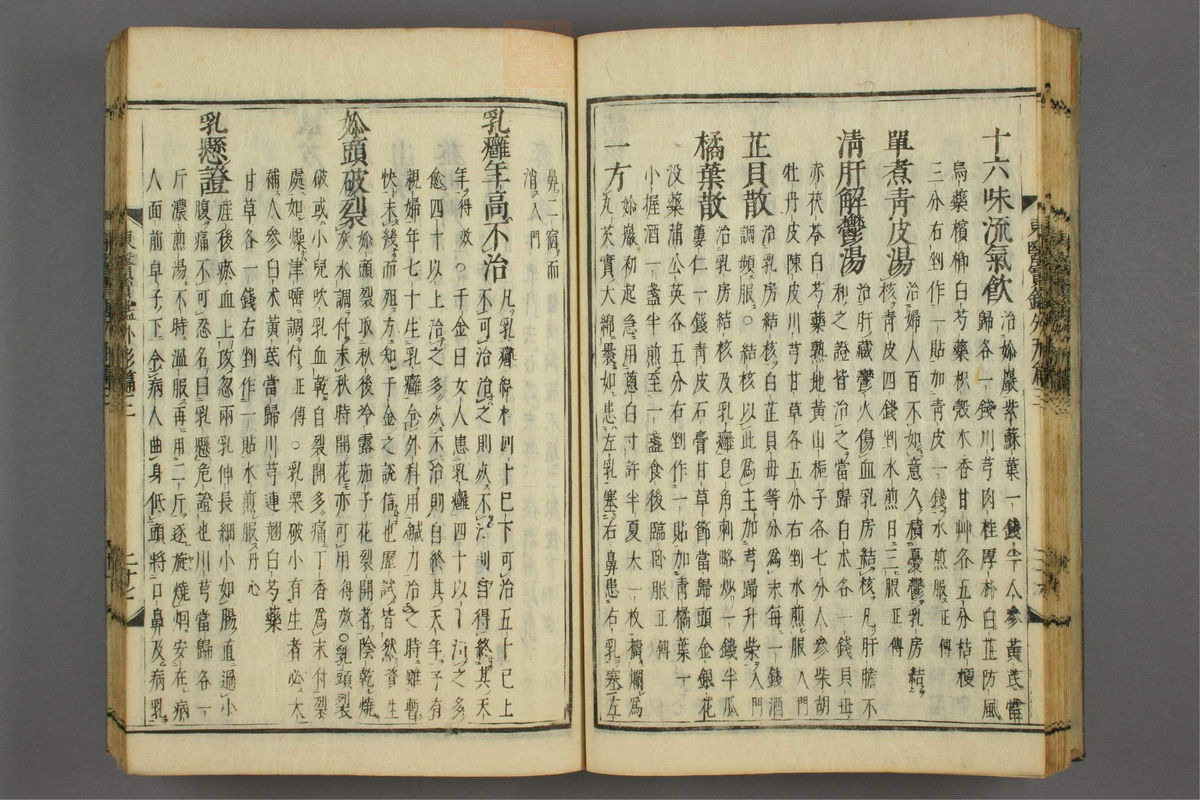 十六味流氣飲 治妳巖紫蘇葉一錢半人參黃芪當
歸各一錢川芎肉桂厚朴白芷防風
烏藥檳榔白芍藥枳殼木香甘艸各五分桔梗
三分右剉作一貼加靑皮一錢水煎服正傳
單煮靑皮湯 治婦人百不如意久積憂鬱乳房結
核靑皮四錢剉水煎日二服正傳
淸肝解鬱湯 治肝藏鬱火傷血乳房結核凡肝膽不
和之證皆治之當歸白朮各一錢貝母
赤茯苓白芍藥熟地黃山梔子各七分人參柴胡
牡丹皮陳皮川芎甘草各五分右剉水煎服入門
芷貝散 治乳房結核白芷貝母等分爲末每一錢酒
調頻服○結核以此爲主加芎歸升柴入門
橘葉散 治乳房結核及乳癰皂角刺略炒一錢半瓜
蔞仁一錢靑皮石膏甘草節當歸頭金銀花
沒藥蒲公英各五分右剉作一貼加靑橘葉一
小握酒一盞半煎至一盞食後臨臥服正傳
一方 妳巖初起急用蔥白寸許半夏大一枚擣爛爲
丸芡實大綿裹如患左乳塞右鼻患右乳塞左
鼻二宿而
消入門
乳癰年高不治 凡乳癰得於四十已下可治五十已上
不可治治之則死不治則自得終其天
年得效○千金曰女人患乳癰四十以下治之多
愈四十以上治之多死不治則自終其天年予有
親婦年七十生乳癰令外科用鍼刀治之時雖暫
快未幾而殂方知千金之說信也屢試皆然資生
妳頭破裂 妳頭裂取秋後冷露茄子花裂開者陰乾燒
灰水調付未秋時開花亦可用得效○乳頭裂
破或小兒吹乳血乾自裂開多痛丁香爲末付裂
處如燥津唾調付正傳○乳栗破小有生者必大
補人參白朮黃芪當歸川芎連翹白芍藥
甘草各一錢右剉作一貼水煎服丹心
乳懸證 産後瘀血上攻忽兩乳伸長細小如腸直過小
腹痛不可忍名曰乳懸危證也川芎當歸各一
斤濃煎湯不時溫服再用二斤逐旋燒烟安在病
人面前卓子下令病人曲身低頭將口鼻及病乳